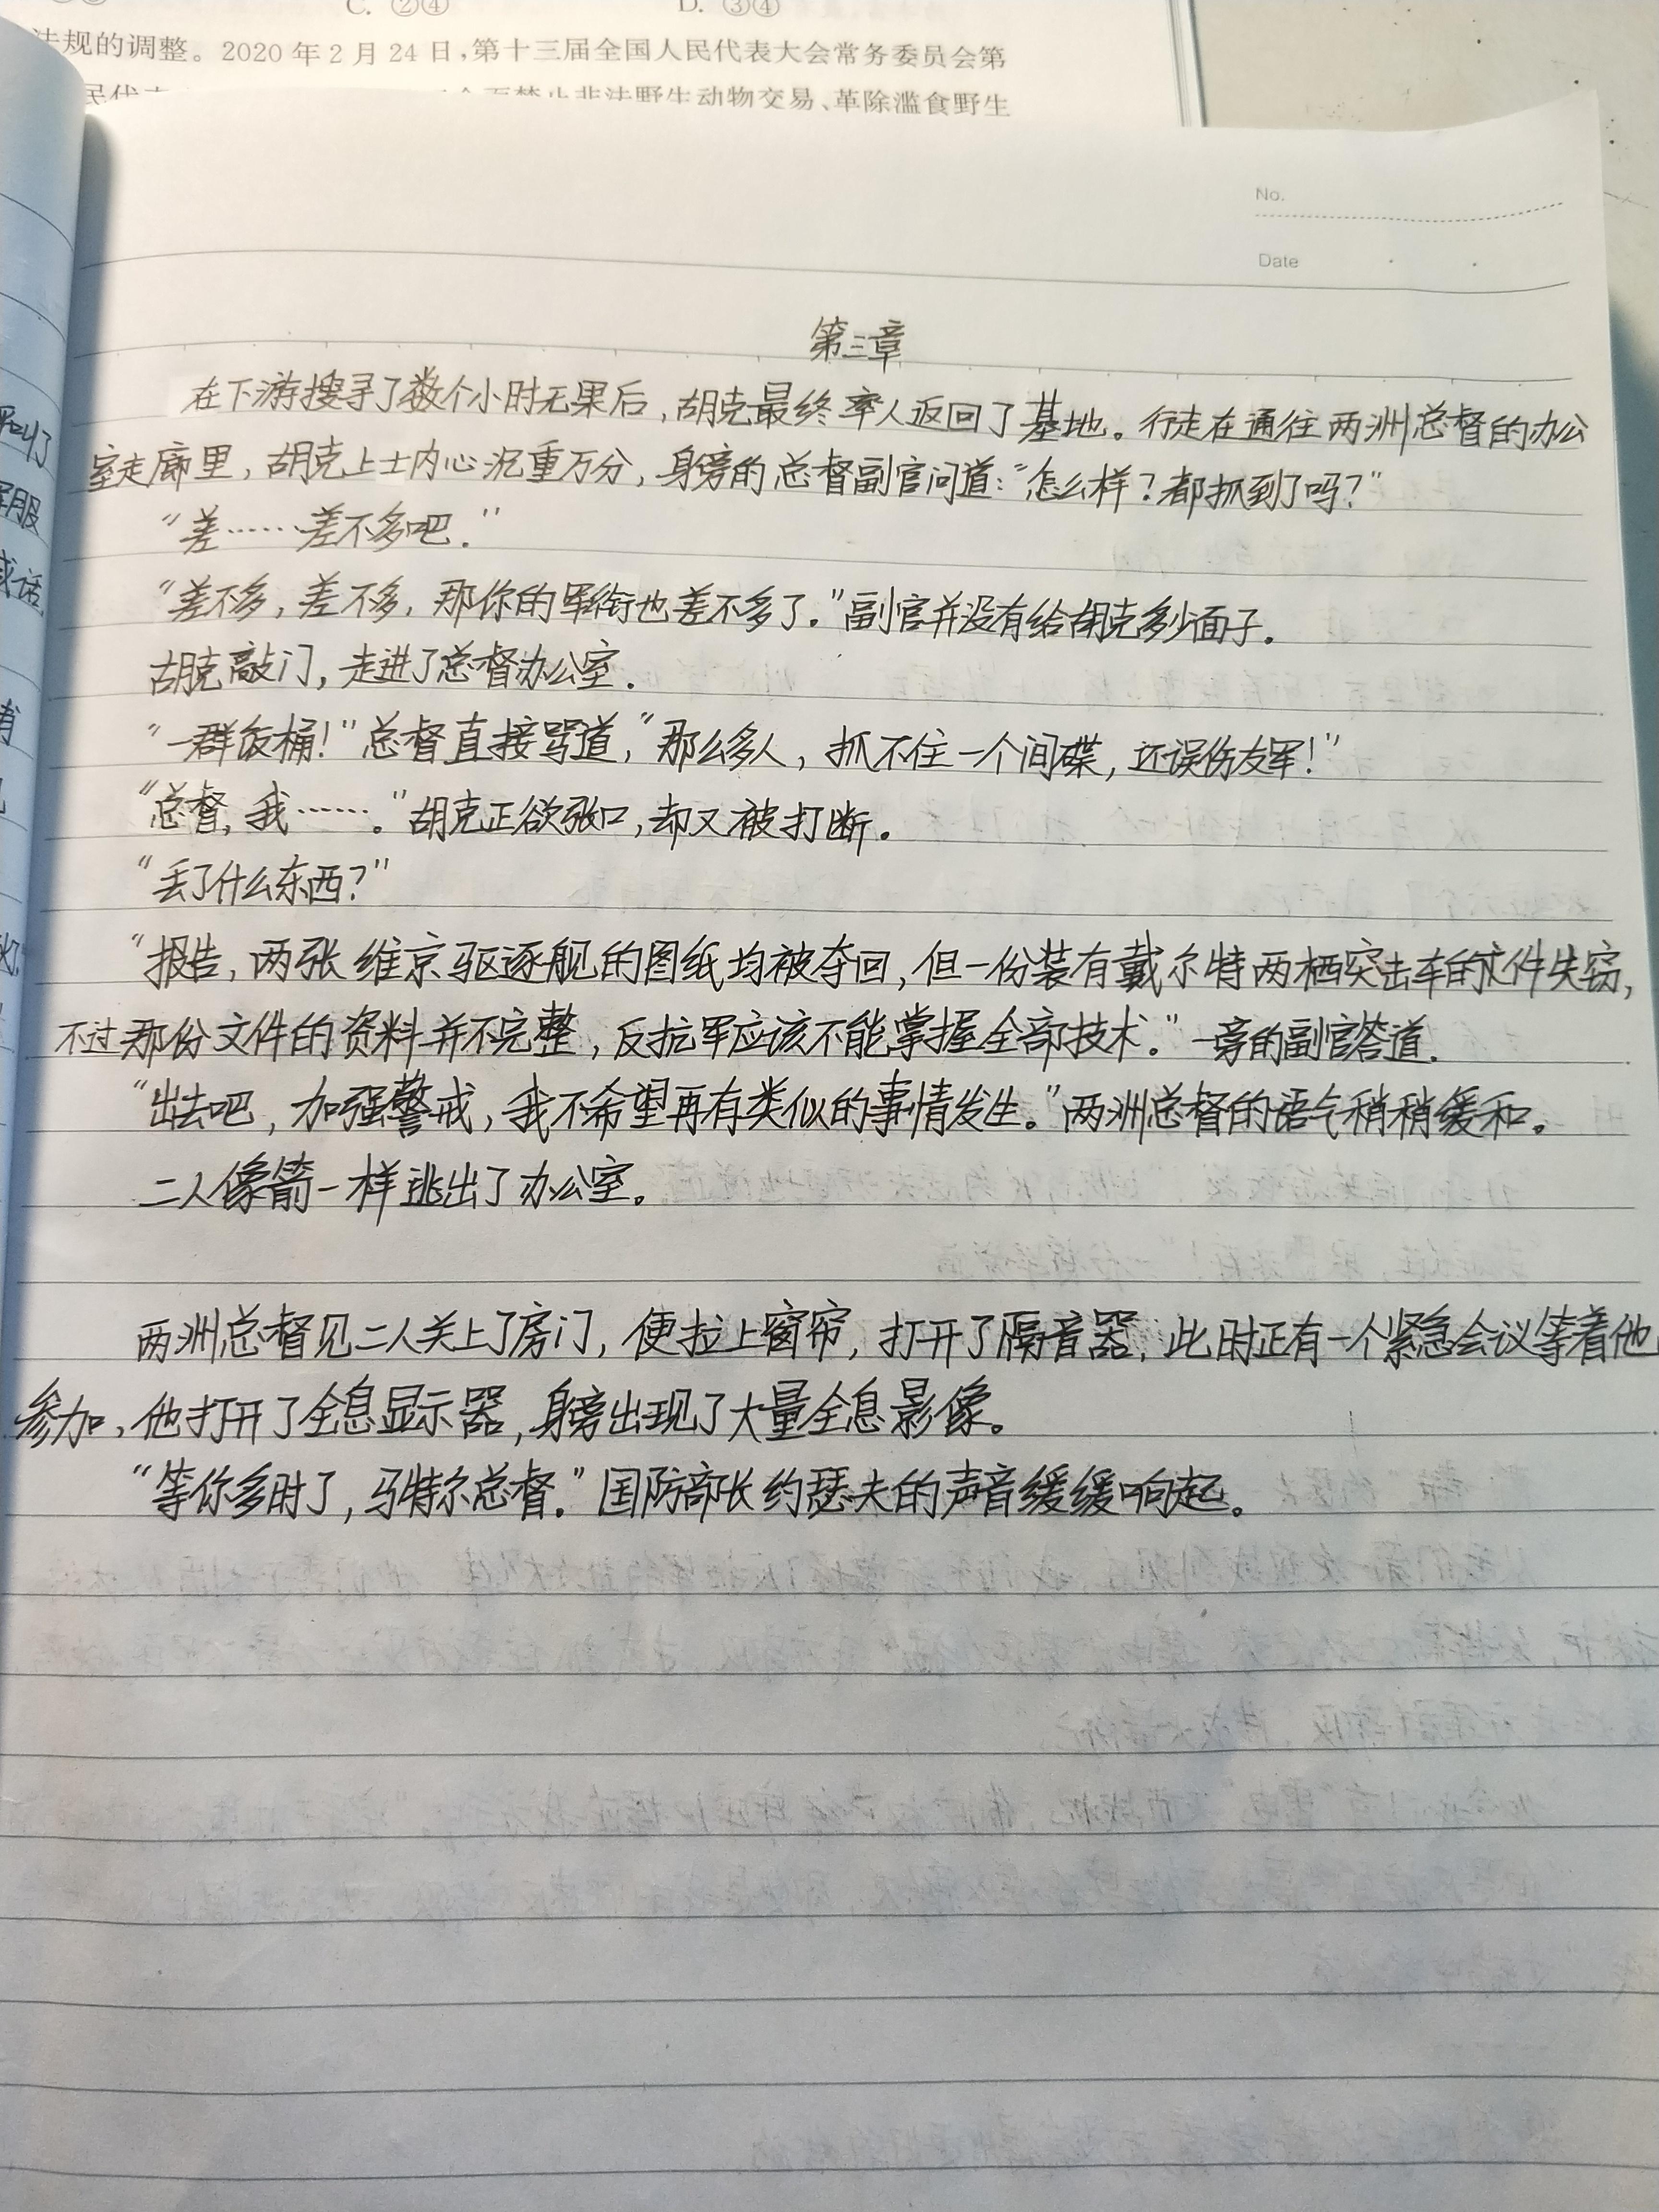 C. ②④ D. ③④
法规的调整。2020 年 2 月 24 日,第十三届全国人民代表大会常务委员会第
民代 禁止非法野生动物交易、革除滥食野生
No.
Date
第三章
在下游搜寻了数个小时无果后,胡克最终率人返回了基地。行走在通往两洲总督的办公
室走廊里,胡克上士内心沉重万分,身旁的总督副官问道:“怎么样?都抓到了吗?”
“差……差不多吧.”
“差不多,差不多,那你的军衔也差不多了。”副官并没有给胡克多少面子.
胡克敲门,走进了总督办公室.
“一群饭桶!”总督直接骂道,“那么多人,抓不住一个间碟,还误伤友军!”
“总督,我……。”胡克正欲张口,却又被打断。
“丢了什么东西?”
“报告,两张维京驱逐舰的图纸均被夺回,但一份装有戴尔特两栖突击车的文件失窃,
不过那份文件的资料并不完整,反抗军应该不能掌握全部技术.”一旁的副官答道.
“出去吧,加强警戒,我不希望再有类似的事情发生。”两洲总督的语气稍稍缓和。
二人像箭一样逃出了办公室。
两洲总督见二人关上了房门,便拉上窗帘,打开了隔音器,此时正有一个紧急会议等着他
参加,他打开了全息显示器,身旁出现了大量全息影像。
“等你多时了,马特尔总督.”国防部长约瑟夫的声音缓缓响起。